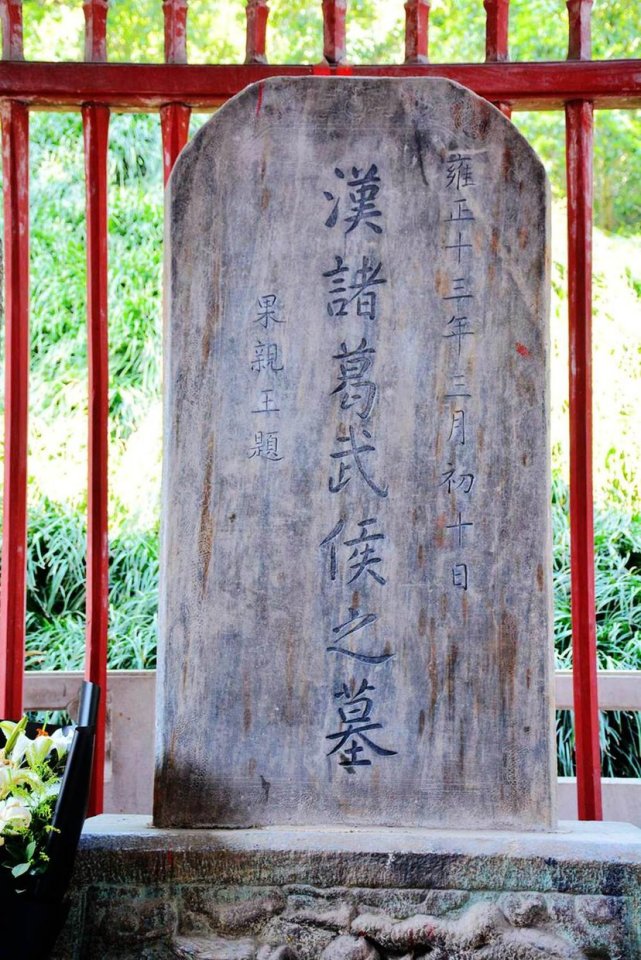 雍正十三年三月初十日
漢諸葛武侯之墓
果親王題